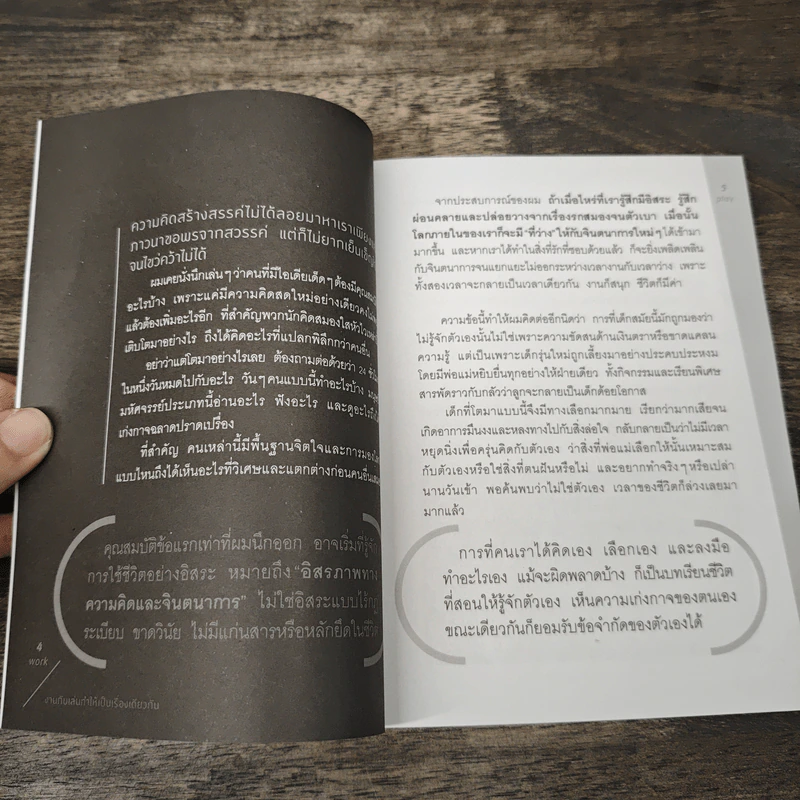 ความคิดสร้างสรรค์ไม่ได้ลอยมาหาเราเพียง
ภาวนาขอพรจากสวรรค์ แต่ก็ไม่ยากเย็นเข็ญ
จนไขว่คว้าไม่ได้
ผมเคยนั่งนึกเล่นๆ ว่าคนที่มีไอเดียเด็ดๆ ต้องมีคุณสมบัติ
อะไรบ้าง เพราะแค่มีความคิดสดใหม่อย่างเดียวคง
แล้วต้องเพิ่มอะไรอีก ที่สำคัญพวกนักคิดสมองใสหัวไว
เติบโตมาอย่างไร ถึงได้คิดอะไรที่แปลกพิลึกกว่าคนอื่น
อย่าว่าแต่โตมาอย่างไรเลย ต้องถามต่อด้วยว่า 24 ชั่วโมง
ในหนึ่งวันหมดไปกับอะไร วันๆ คนแบบนี้ทำอะไรบ้าง
มหัศจรรย์ประเภทนี้อ่านอะไร ฟังอะไร และดูอะไร
เก่งกาจฉลาดปราดเปรื่อง
ที่สำคัญ คนเหล่านี้มีพื้นฐานจิตใจและการมอง
แบบไหนถึงได้เห็นอะไรที่วิเศษและแตกต่างก่อนคนอื่น
คุณสมบัติข้อแรกเท่าที่ผมนึกออก อาจเริ่มที่รู้จัก
การใช้ชีวิตอย่างอิสระ หมายถึง "อิสรภาพทาง
ความคิดและจินตนาการ" ไม่ใช่อิสระแบบไร้กฎ
ระเบียบ ขาดวินัย ไม่มีแก่นสารหรือหลักยึดในชีวิต
4
work
งานกับเล่นทำให้เป็นเรื่องเดียวกัน
5
play
จากประสบการณ์ของผม ถ้าเมื่อไหร่ที่เรารู้สึกมีอิสระ รู้สึก
ผ่อนคลายและปล่อยวางจากเรื่องรกสมองจนตัวเบา เมื่อนั้น
โลกภายในของเราก็จะมี "ที่ว่าง" ให้กับจินตนาการใหม่ๆ ได้เข้ามา
มากขึ้น และหากเราได้ทำในสิ่งที่รักที่ชอบด้วยแล้ว ก็จะยิ่งเพลิดเพลิน
กับจินตนาการจนแยกแยะไม่ออกระหว่างเวลางานกับเวลาว่าง เพราะ
ทั้งสองเวลาจะกลายเป็นเวลาเดียวกัน งานก็สนุก ชีวิตก็มีค่า
ความข้อนี้ทำให้ผมคิดต่ออีกนิดว่า การที่เด็กสมัยนี้มักถูกมองว่า
ไม่รู้จักตัวเองนั้นไม่ใช่เพราะความขัดสนด้านเงินตราหรือขาดแคลน
ความรู้ แต่เป็นเพราะเด็กรุ่นใหม่ถูกเลี้ยงมาอย่างประคบประหงม
โดยมีพ่อแม่หยิบยื่นทุกอย่างให้ฝ่ายเดียว ทั้งกิจกรรมและเรียนพิเศษ
สารพัดราวกับกลัวว่าลูกจะกลายเป็นเด็กด้อยโอกาส
เด็กที่โตมาแบบนี้จึงมีทางเลือกมากมาย เรียกว่ามากเสียจน
เกิดอาการมึนงงและหลงทางไปกับสิ่งล่อใจ กลับกลายเป็นว่าไม่มีเวลา
หยุดนิ่งเพื่อครุ่นคิดกับตัวเอง ว่าสิ่งที่พ่อแม่เลือกให้นั้นเหมาะสม
กับตัวเองหรือใช่สิ่งที่ตนฝันหรือไม่ และอยากทำจริงๆ หรือเปล่า
นานวันเข้า พอค้นพบว่าไม่ใช่ตัวเอง เวลาของชีวิตก็ล่วงเลยมา
มากแล้ว
การที่คนเราได้คิดเอง เลือกเอง และลงมือ
ทำอะไรเอง แม้จะผิดพลาดบ้าง ก็เป็นบทเรียนชีวิต
ที่สอนให้รู้จักตัวเอง เห็นความเก่งกาจของตนเอง
ขณะเดียวกันก็ยอมรับข้อจำกัดของตัวเองได้